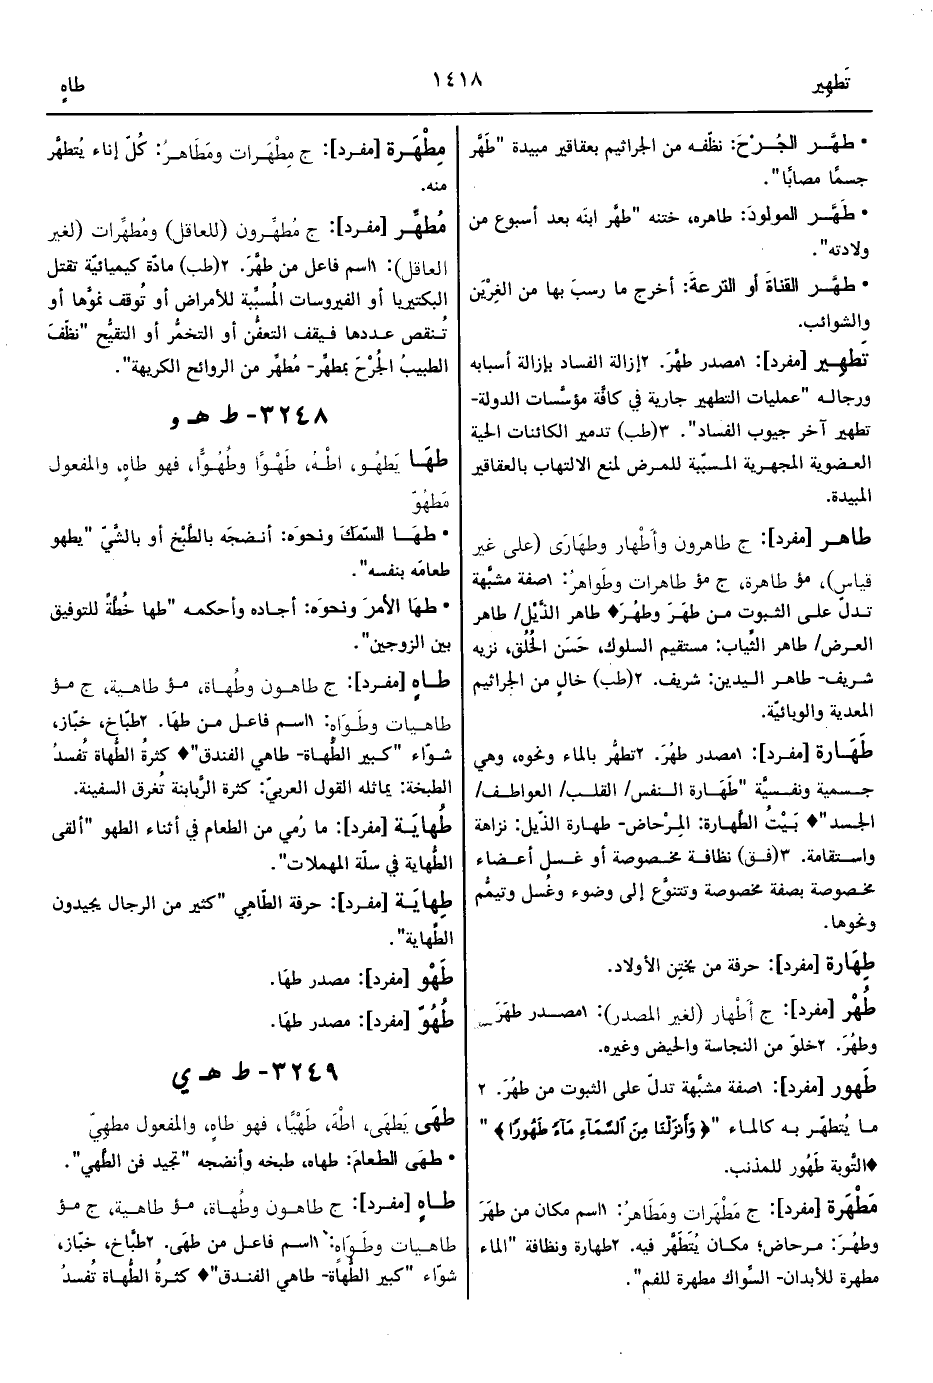 تَطهِير
١٤١٨
طاهٍ
• طهَّر الجُرْحَ: نظّفه من الجراثيم بعقاقير مبيدة "طَهَّر
جسمًا مصابًا".
• طَهَّر المولودَ: طاهره، ختنه "طهَّر ابنَه بعد أسبوع من
ولادته".
• طهَّر القناةَ أو الترعةَ: أخرج ما رسبَ بها من الغِرْيَن
والشوائب.
تَطهِير [مفرد]: ١مصدر طهَّرَ. ٢إزالة الفساد بإزالة أسبابه
ورجاله "عمليات التطهير جارية في كافَّة مؤسَّسات الدولة-
تطهير آخر جيوب الفساد". ٣(طب) تدمير الكائنات الحية
العضوية المجهرية المسبِّبة للمرض لمنع الالتهاب بالعقاقير
المبيدة.
طاهر [مفرد]: ج طاهرون وأَطْهار وطهَارَى (على غير
قياس)، مؤ طاهرة، ج مؤ طاهرات وطَواهرُ: ١صفة مشبَّهة
تدلّ على الثبوت من طهَرَ وطهُرَ♦ طاهر الذَّيْل/ طاهر
العرض/ طاهر الثِّياب: مستقيم السلوك، حَسَن الخُلُق، نزيه
شريف- طاهر اليدين: شريف. ٢(طب) خالٍ من الجراثيم
المعدية والوبائيّة.
طَهَارة [مفرد]: ١مصدر طهُرَ. ٢تطهُّر بالماء ونحوه، وهي
جسمية ونفسيَّة "طَهَارة النفس/ القلب/ العواطف/
الجسد"♦ بَيْتُ الطَّهارة: المِرْحاض- طهارة الذّيل: نزاهة
واستقامة. ٣(فق) نظافة مخصوصة أو غسل أعضاء
مخصوصة بصفة مخصوصة وتتنوَّع إلى وضوء وغُسل وتيمُّم
ونحوها.
طِهَارة [مفرد]: حرفة من يختِن الأولاد.
طُهْر [مفرد]: ج أَطْهار (لغير المصدر): ١مصدر طهَرَ
وطهُرَ. ٢خلوّ من النجاسة والحيض وغيره.
طَهور [مفرد]: ١صفة مشبَّهة تدلّ على الثبوت من طهُرَ. ٢
ما يُتطهّر به كالماء "﴿وَأَنزَلْنَا مِنَ ٱلسَّمَآءِ مَآءً طَهُورًا﴾"
♦التَّوبة طَهُور للمذنب.
مَطْهَرة [مفرد]: ج مَطْهَرات ومَطَاهرُ: ١اسم مكان من طهَرَ
وطهُرَ: مرحاض؛ مكان يُتَطهَّر فيه. ٢طهارة ونظافة "الماء
مطهرة للأبدان- السِّواك مطهرة للفم".
مِطْهَرة [مفرد]: ج مِطْهَرات ومَطَاهرُ: كُلّ إناء يُتطهَّر
منه.
مُطهِّر [مفرد]: ج مُطهِّرون (للعاقل) ومُطهِّرات (لغير
العاقل): ١اسم فاعل من طهَّرَ. ٢(طب) مادّة كيميائيّة تقتل
البكتيريا أو الفيروسات المُسبِّبة للأمراض أو تُوقف نموَّها أو
تُنقص عددها فيقف التعفُّن أو التخمُّر أو التقيُّح "نظّفَ
الطبيبُ الجُرْحَ بمطهِّر- مُطهِّر من الروائح الكريهة".
٣٢٤٨- ط هـ و
طهَا يَطهُو، اطْهُ، طَهْوًا وطُهُوًّا، فهو طاهٍ، والمفعول
مَطهُوّ
• طهَا السَّمَكَ ونحوَه: أنضجَه بالطَّبْخ أو بالشَّيّ "يطهو
طعامَه بنفسه".
• طهَا الأمرَ ونحوَه: أجاده وأحكمه "طها خُطَّةً للتوفيق
بين الزوجين".
طاهٍ [مفرد]: ج طاهون وطُهاة، مؤ طاهية، ج مؤ
طاهيات وطَوَاهٍ: ١اسم فاعل من طهَا. ٢طبَّاخ، خبّاز،
شوّاء "كبير الطُّهاة- طاهي الفندق"♦ كثرةُ الطُّهاة تُفسدُ
الطبخة: يماثله القول العربيّ: كثرة الرَّبابنة تُغرق السفينة.
طُهايَة [مفرد]: ما رُمي من الطعام في أثناء الطهو "ألقى
الطُّهاية في سلّة المهملات".
طِهايَة [مفرد]: حرفة الطّاهي "كثير من الرجال يجيدون
الطِّهاية".
طَهْو [مفرد]: مصدر طهَا.
طُهُوّ [مفرد]: مصدر طهَا.
٣٢٤٩- ط هـ ي
طهَى يَطهَى، اطْهَ، طَهْيًا، فهو طاهٍ، والمفعول مطهيّ
• طهَى الطعامَ: طهاه، طبخه وأنضجه "تجيد فن الطَّهي".
طاهٍ [مفرد]: ج طاهون وطُهاة، مؤ طاهية، ج مؤ
طاهيات وطَوَاهٍ: ١اسم فاعل من طهَى. ٢طبَّاخ، خبّاز،
شوّاء "كبير الطُّهاة- طاهي الفندق"♦ كثرةُ الطُّهاة تُفسدُ